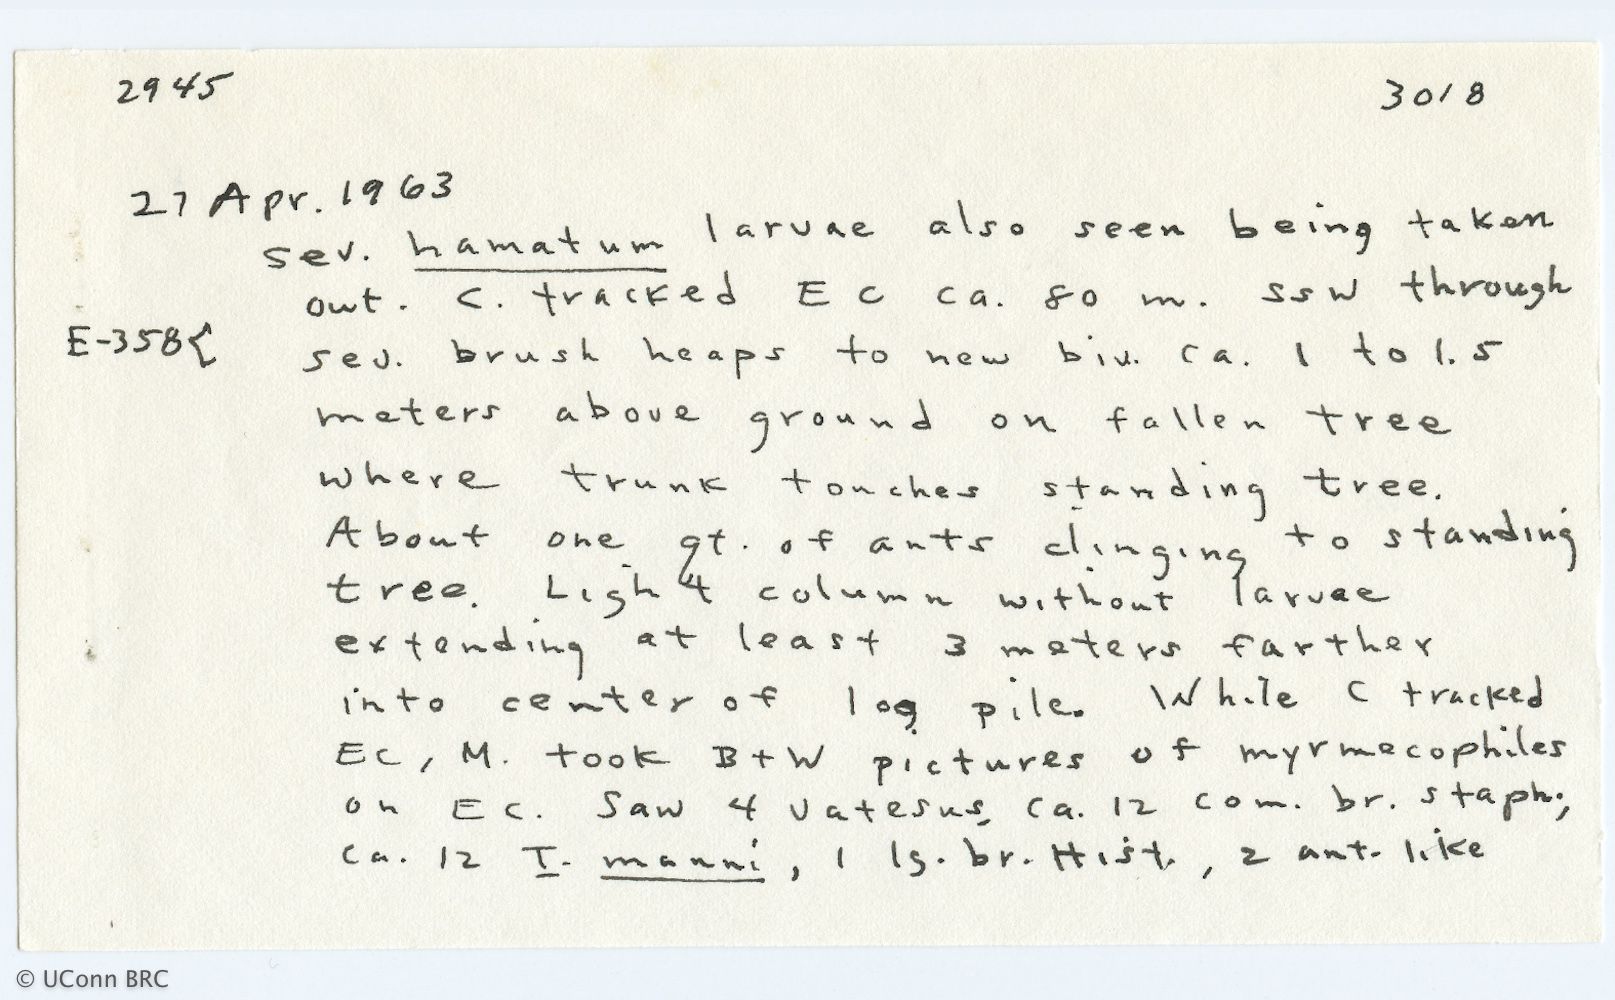 2945 3018
27 Apr. 1963
sev. hamatum larvae also seen being taken
out. C. tracked EC ca. 80 m. SSW through
E-358{ sev. brush heaps to new biv. ca. 1 to 1.5
meters above ground on fallen tree
where trunk touches standing tree.
About one qt. of ants clinging to standing
tree. Light column without larvae
extending at least 3 meters farther
into center of log pile. While C tracked
EC, M. took B+W pictures of myrmecophiles
on EC. Saw 4 Vatesus, ca. 12 com. br. staph.,
ca. 12 T. manni, 1 lg. br. Hist., 2 ant-like
© UConn BRC